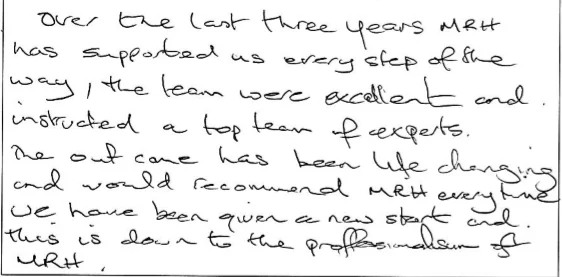 Over the last three years MRH
has supported us every step of the
way, the team were excellent and.
instructed a top team of experts.
The out come has been life changing
and would recommend MRH everytime
we have been given a new start and.
this is down to the proffessionalism of
MRH.